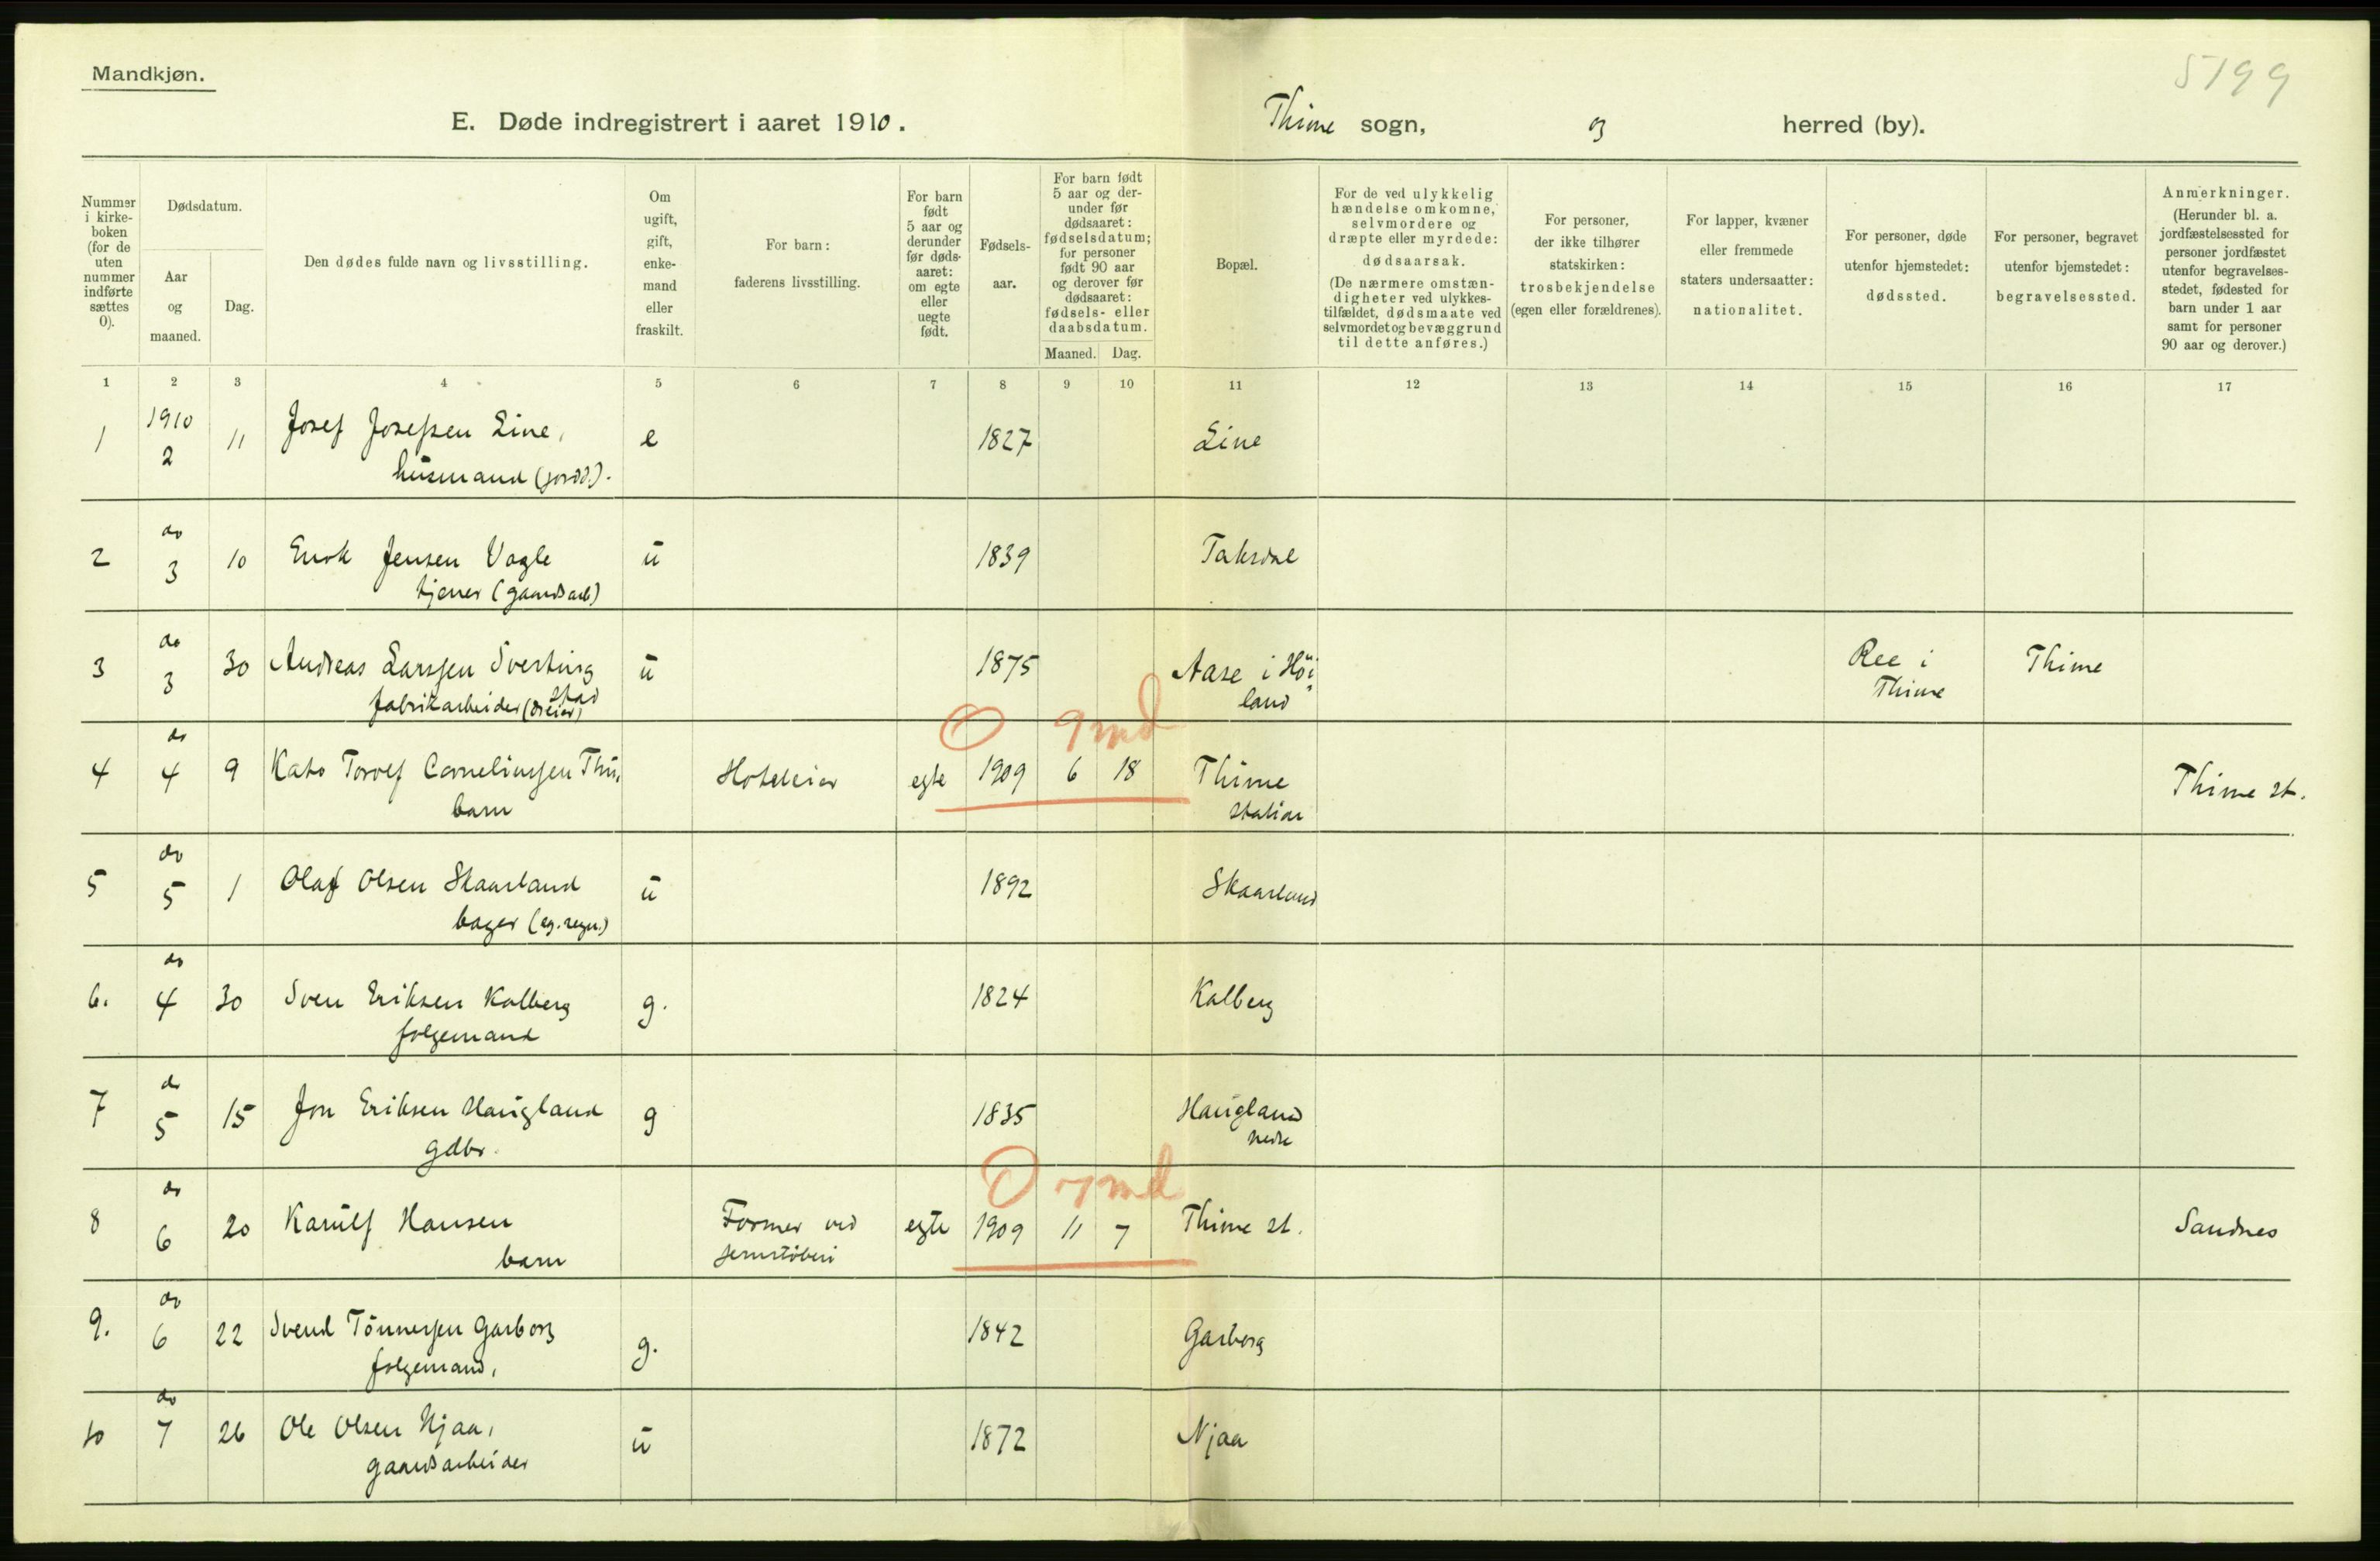 Mandkjøn.
5199
E. Døde indregistrert i aaret 1910.
Thime sogn, og herred (by).
Nummer i kirkeboken (for de uten nummer indførte sættes 0).
Dødsdatum.
Aar og maaned.
Dag.
Den dødes fulde navn og livsstilling.
Om ugift, gift, enkemand eller fraskilt.
For barn: faderens livsstilling.
For barn født 5 aar og derunder før dødsaaret: om egte eller uegte født.
Fødselsaar.
For barn født 5 aar og derunder før dødsaaret: fødselsdatum; for personer født 90 aar og derover før dødsaaret: fødsels- eller daabsdatum.
Maaned. Dag.
Bopæl.
For de ved ulykkelig hændelse omkomne, selvmordere og dræpte eller myrdede: dødsaarsak.
(De nærmere omstændigheter ved ulykkestilfældet, dødsmaate ved selvmordet og bevæggrund til dette anføres.)
For personer, der ikke tilhører statskirken: trosbekjendelse (egen eller forældrenes).
For lapper, kvæner eller fremmede staters undersaatter: nationalitet.
For personer, døde utenfor hjemstedet: dødssted.
For personer, begravet utenfor hjemstedet: begravelsessted.
Anmerkninger.
(Herunder bl. a. jordfæstelsessted for personer jordfæstet utenfor begravelsesstedet, fødested for barn under 1 aar samt for personer 90 aar og derover.)
1 2 3 4 5 6 7 8 9 10 11 12 13 14 15 16 17
1 1910 2 11 Josef Josefsen Line, e 1827 Line
husmand (jordb.).
2 do 3 10 Enok Jensen Vagle u 1839 Taksdal
tjener (gaardsarb)
3 do 3 30 Andreas Larssen Svertingstad u 1875 Aase i Höiland Ree i Thime Thime
fabrikarbeider (dreier)
0 9 md
4 do 4 9 Kato Torolf Corneliussen Thu, Hoteleier egte 1909 6 18 Thime station Thime st.
barn
5 do 5 1 Olaf Olsen Skaarland u 1892 Skaarland
bager (eg. regn.)
6. do 4 30 Sven Eriksen Kalberg g. 1824 Kalberg
folgemand
7 do 5 15 Jon Eriksen Haugland g 1835 Haugland nedre
gdbr.
0 7 md
8 do 6 20 Karulf Hansen Former ved jernstöberi egte 1909 11 7 Thime st. Sandnes
barn
9. do 6 22 Svend Tönnessen Garborg g. 1842 Garborg
folgemand,
10 do 7 26 Ole Olsen Njaa, u 1872 Njaa
gaardsarbeider